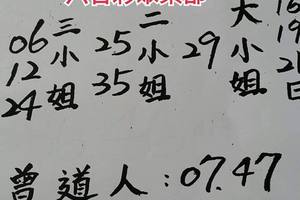 三 二 大
06 小 25 小 29 小 19
12 姐 35 姐 姐
24
曾道人:07.47